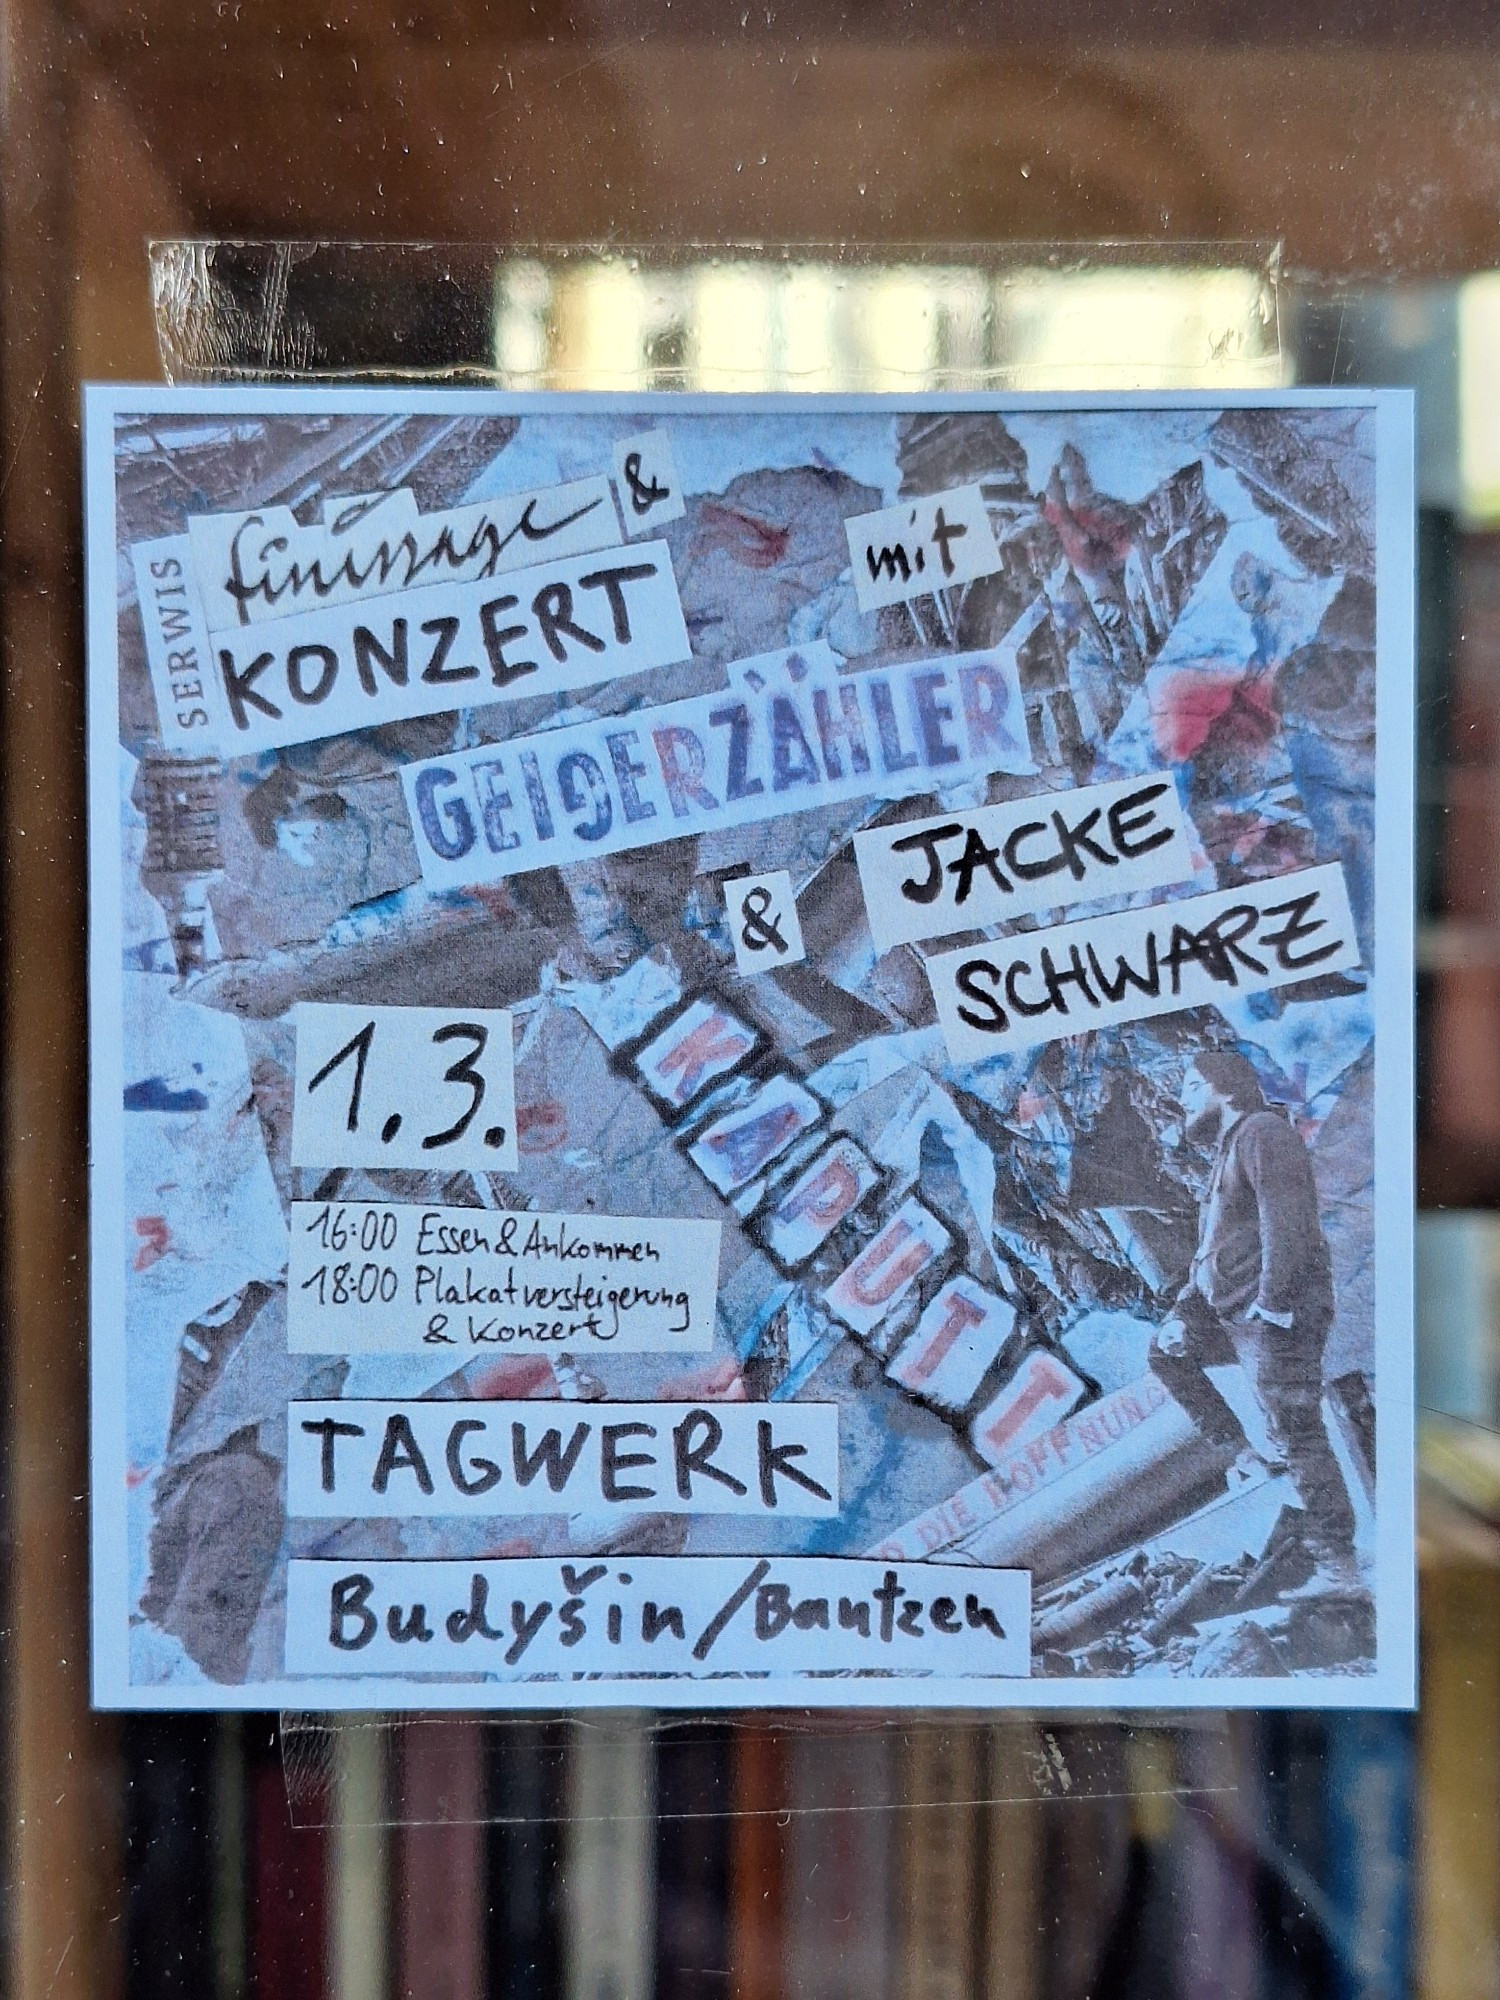 finissage &
SERWIS
KONZERT
mit
GEIGERZÄHLER
& JACKE
SCHWARZ
KAPUTT
1.3.
16:00 Essen & Ankommen
18:00 Plakatversteigerung
& Konzert
DIE HOFFNUNG
TAGWERK
Budyšin/Bautzen